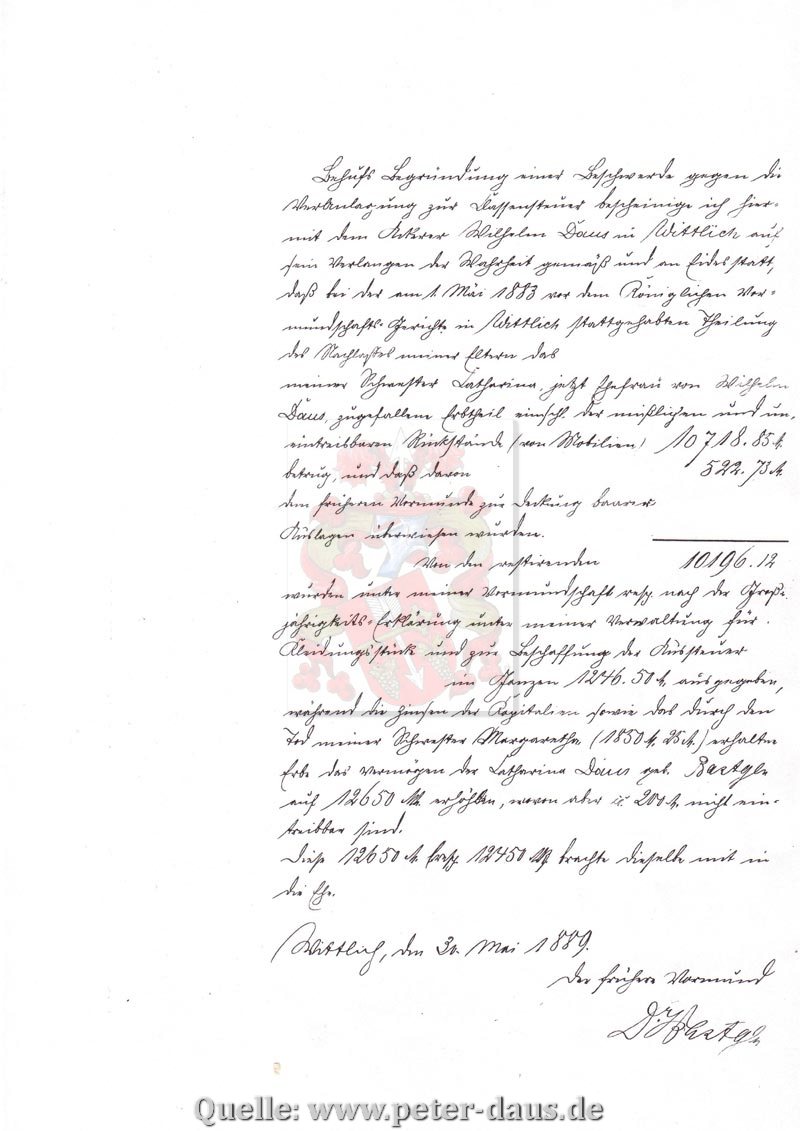 Behufs Begründung einer Beschwerde gegen die
Veranlagung zur Klassensteuer bescheinige ich hier-
mit dem Ackerer Wilhelm Daus in Wittlich auf
sein Verlangen der Wahrheit gemäß und an Eidesstatt,
daß bei der am 1. Mai 1883 vor dem Königlichen Vor-
mundschafts-Gericht in Wittlich stattgehabten Theilung
des Nachlasses meiner Eltern das
meiner Schwester Catharina, jetzt Ehefrau von Wilhelm
Daus, zugefallene Erbtheil einschl. der mißlichen und un-
eintreibbaren Rückstände (von Mobilien) 10718.85 M.
betrug, und daß davon 522.73 M.
dem früheren Vormunde zur Deckung baarer
Auslagen überwiesen wurden.
Von den restirenden 10196.12
wurden unter meiner Vormundschaft resp. nach der Groß-
jährigkeits-Erklärung unter meiner Verwaltung für
Kleidungsstück und zur Beschaffung der Aussteuer
im Ganzen 1246.50 M. ausgegeben,
während die Zinsen der Kapitalien sowie das durch den
Tod meiner Schwester Margaretha (1850 M. 25 ) erhaltene
Erbe das Vermögen der Catharina Daus geb.
auf 12650 M. erhöhten, wovon aber 200 M. nicht ein-
treibbar sind.
Diese 12650 M. (resp. 12450 M) brachte dieselbe mit in
die Ehe.
Wittlich, den 30. Mai 1889.
Der frühere Vormund
Quelle: www.peter-daus.de